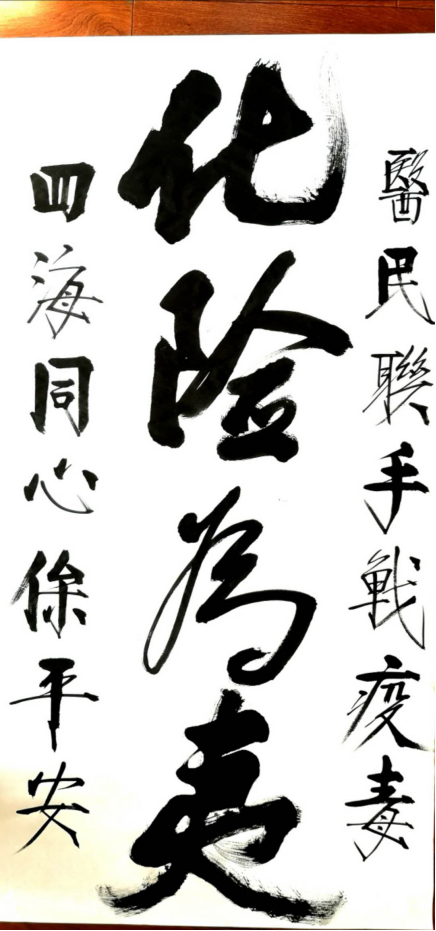 醫民聯手戰疫毒
化险為夷
四海同心保平安